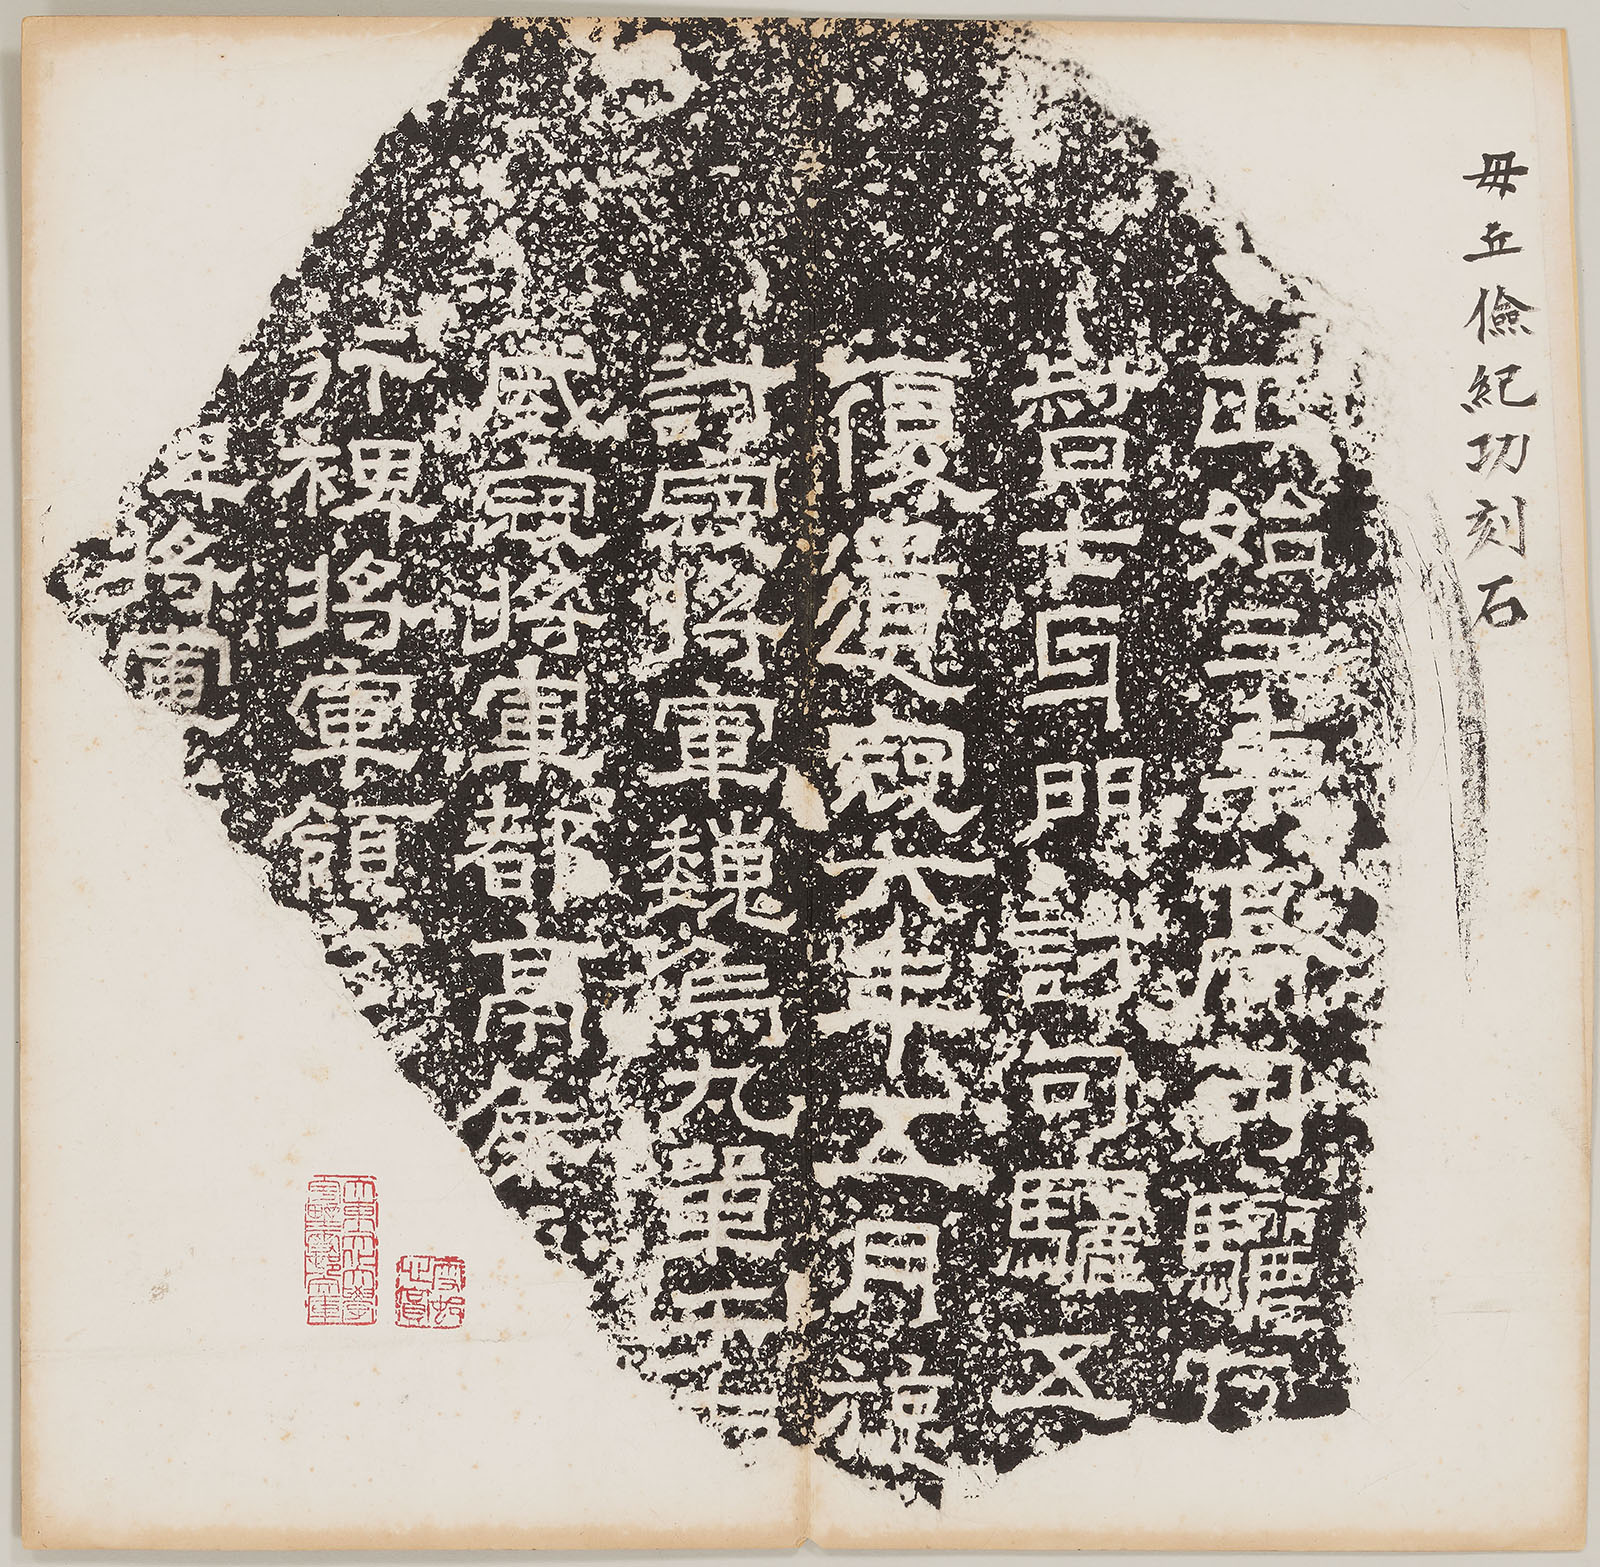 毋丘儉紀功刻石
正始三年高句驪
督七牙門討句驪五
復遺寇六年五月旋
討寇將軍魏烏丸單于
威寇將軍都亭侯
行裨將軍領
裨將軍